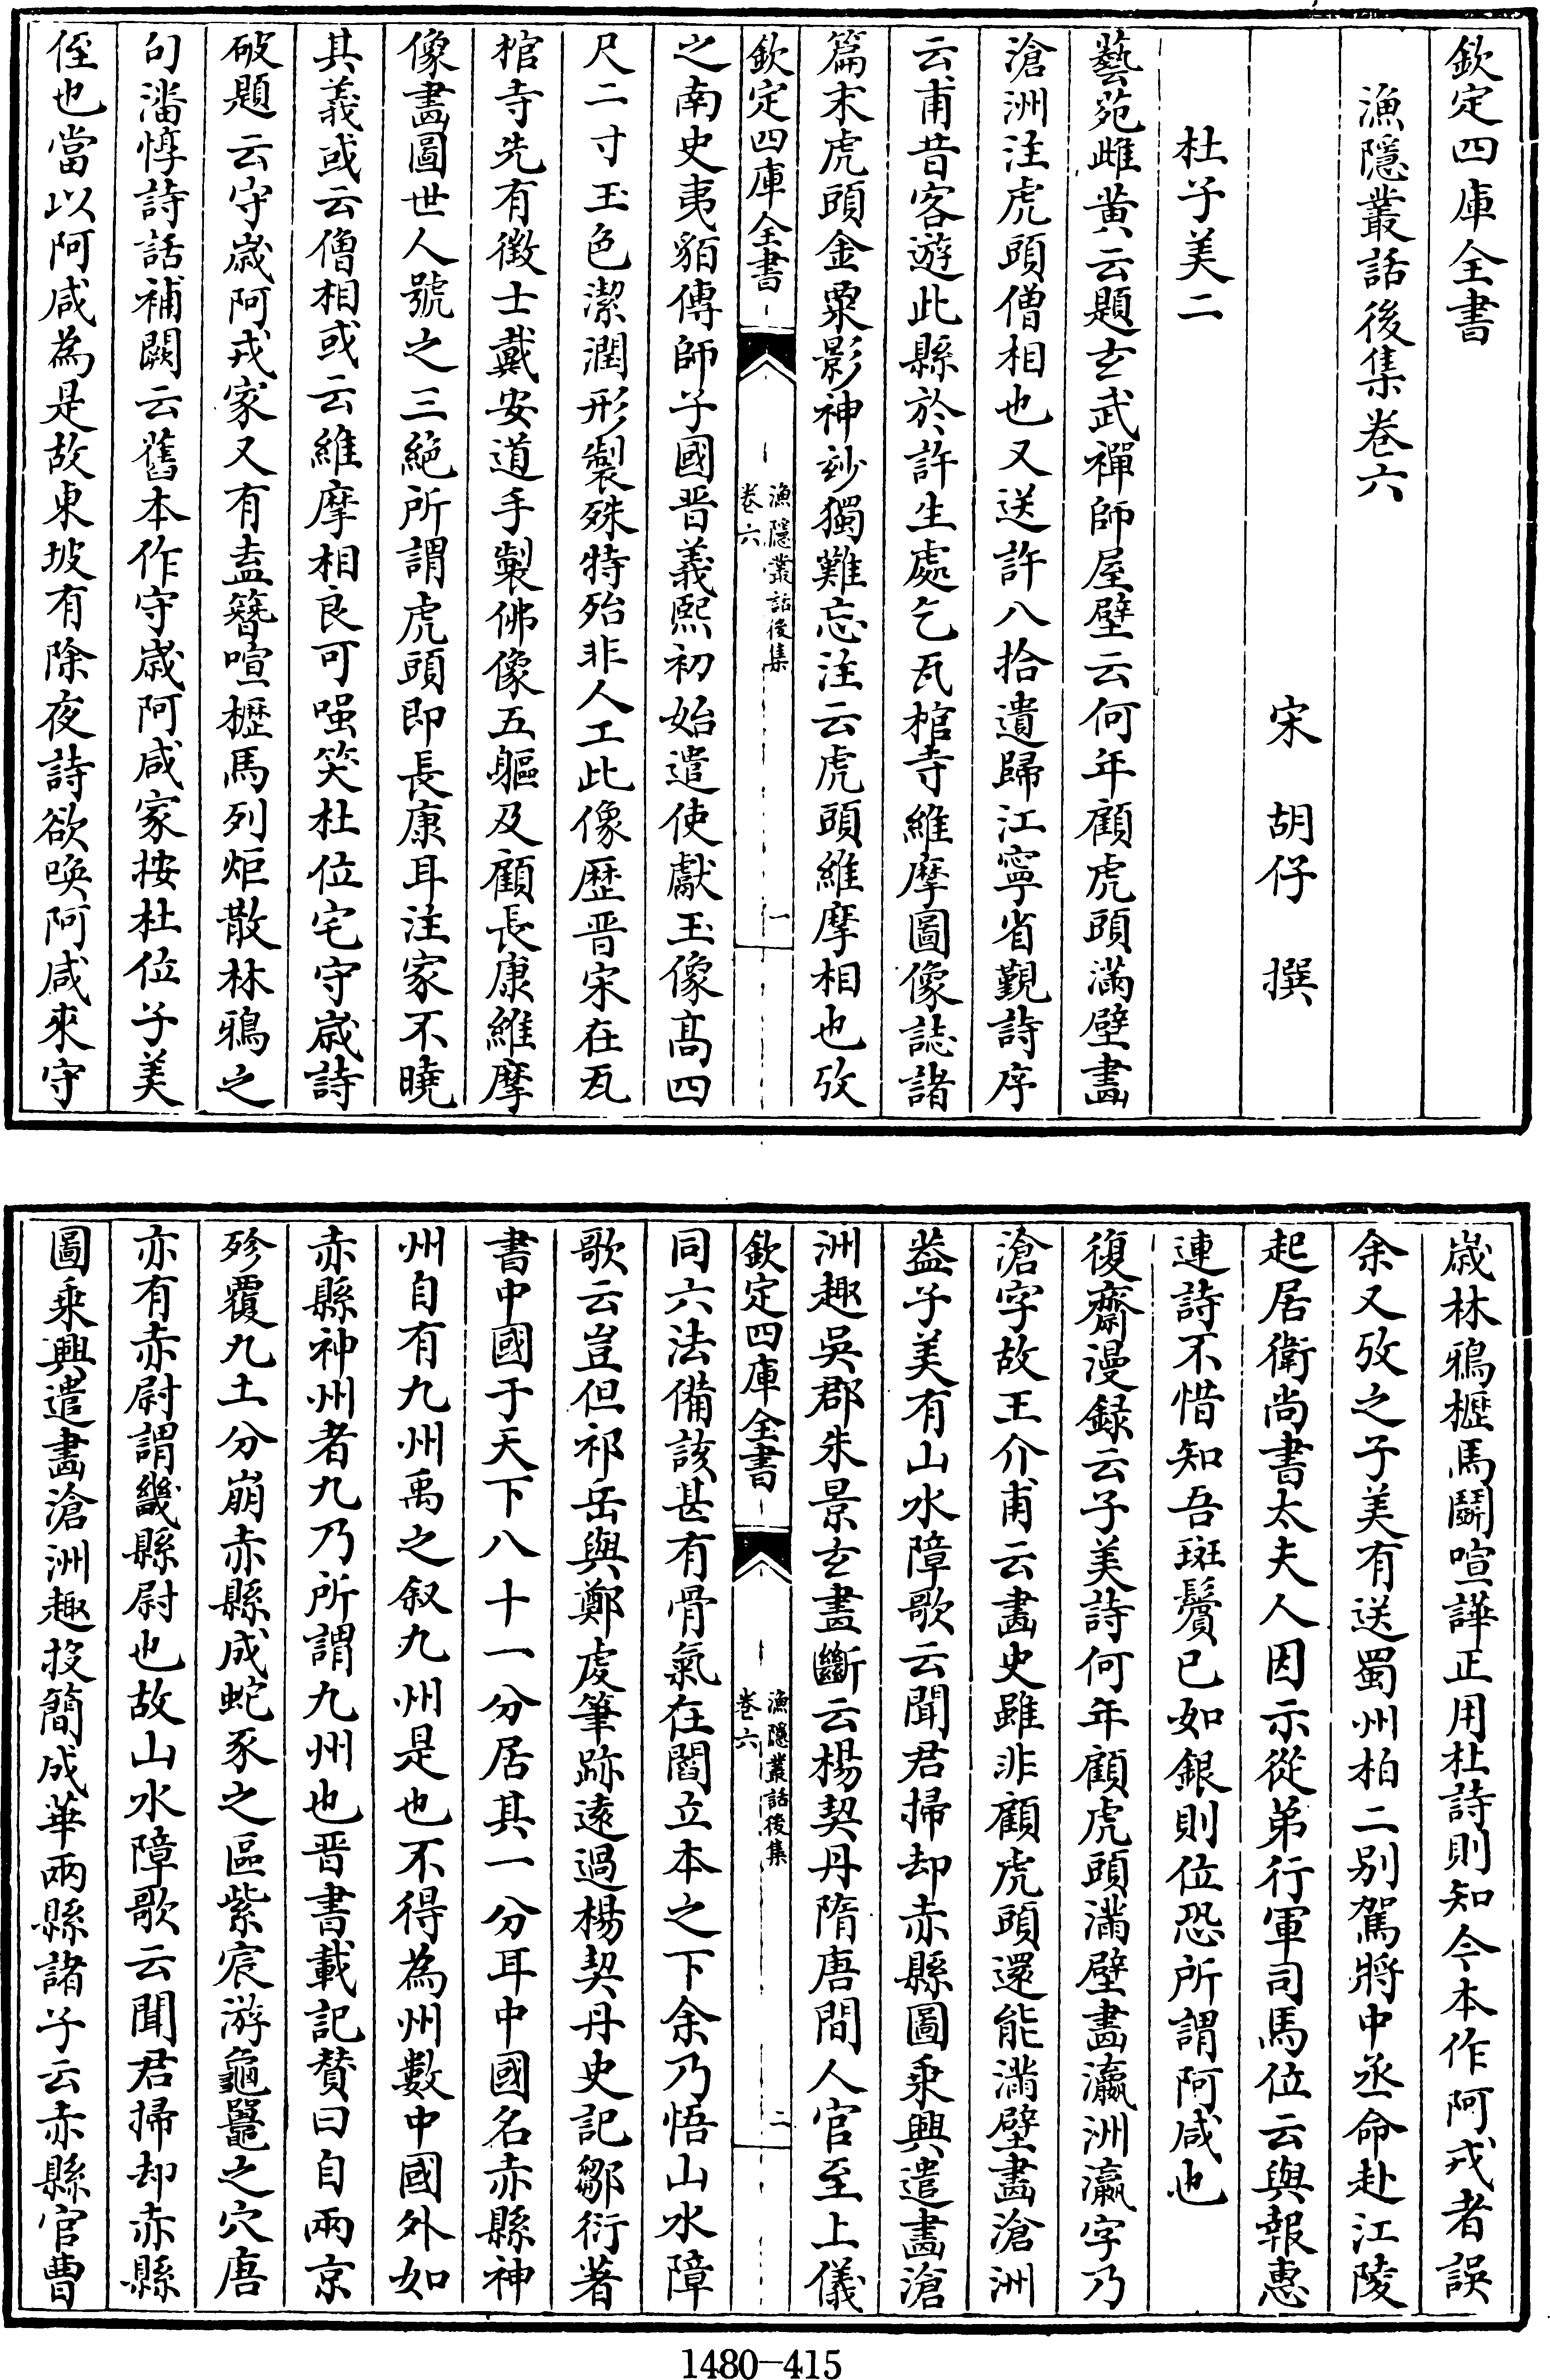 欽定四庫全書
漁隱叢話後集卷六
宋 胡仔 撰
杜子美二
藝苑雌黄云題玄武禪師屋壁云何年顧虎頭滿壁畫
滄洲注虎頭僧相也又送許八拾遺歸江寧省覲詩序
云甫昔客遊此縣於許生處乞瓦棺寺維摩圖像誌諸
篇末虎頭金粟影神玅獨難忘注云虎頭維摩相也攷
欽定四庫全書
漁隱叢話後集
卷六
一
之南史夷貊傳師子國晋義熙初始遣使獻玉像髙四
尺二寸玉色潔潤形製殊特殆非人工此像歴晋宋在瓦
棺寺先有徴士戴安道手製佛像五軀及顧長康維摩
像畫圖世人號之三絶所謂虎頭即長康耳注家不曉
其義或云僧相或云維摩相良可嗤笑杜位宅守歳詩
破題云守歳阿戎家又有盍簪喧櫪馬列炬散林鴉之
句潘惇詩話補闕云舊本作守歳阿咸家按杜位子美
侄也當以阿咸為是故東坡有除夜詩欲喚阿咸來守
歳林鴉櫪馬鬬喧譁正用杜詩則知今本作阿戎者誤
余又攷之子美有送蜀州柏二别駕將中丞命赴江陵
起居衛尚書太夫人因示從弟行軍司馬位云與報惠
連詩不惜知吾斑鬢已如銀則位恐所謂阿咸也
復齋漫録云子美詩何年顧虎頭滿壁畫瀛洲瀛字乃
滄字故王介甫云畫史雖非顧虎頭還能滿壁畫滄洲
益子美有山水障歌云聞君掃却赤縣圖乗興遣畫滄
洲趣吳郡朱景玄畫斷云楊契丹隋唐間人官至上儀
欽定四庫全書
漁隱叢話後集
卷六
二
同六法備該甚有骨氣在閻立本之下余乃悟山水障
歌云豈但祁岳與鄭䖍筆跡逺過楊契丹史記鄒衍著
書中國于天下八十一分居其一分耳中國名赤縣神
州自有九州禹之叙九州是也不得為州數中國外如
赤縣神州者九乃所謂九州也晋書載記賛曰自兩京
殄覆九土分崩赤縣成蛇豕之區紫宸游龜鼉之穴唐
亦有赤尉謂畿縣尉也故山水障歌云聞君掃却赤縣
圖乗興遣畫滄洲趣投簡成華兩縣諸子云赤縣官曹
1480-415